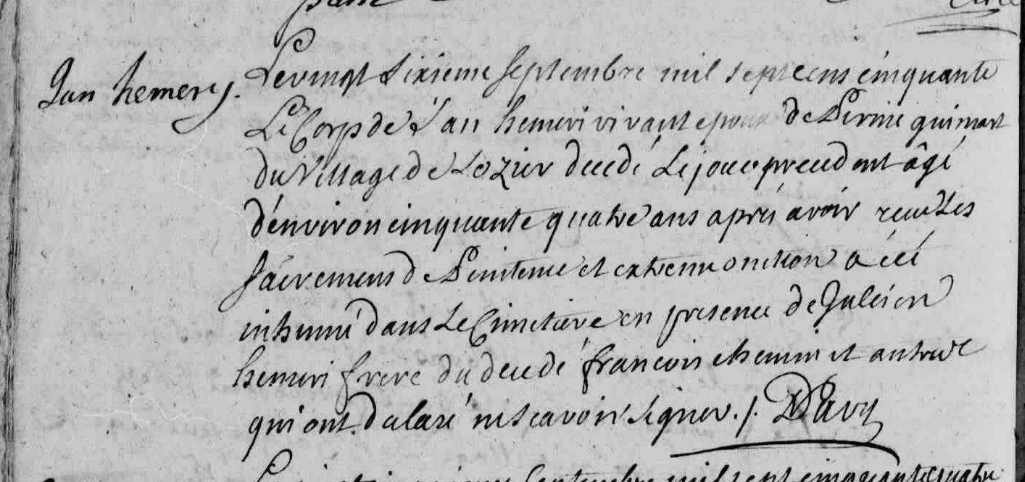 Jan hemery.
Le vingt sixieme septembre mil sept cens cinquante
Le Corps de Jan hemeri vivant epoux de Perine guimart
du Village de Lozier decedé Le jour precedent âgé
d'environ cinquante quatre ans aprés avoir receu Les
sacremens de Penitence et extreme onction a été
inhumé dans Le Cimetiere en presence de Julien
hemeri frere du decedé francois et autre
qui ont dalaré ne scavoir signer. /. Davy
septembre mil sept cinquante quatre